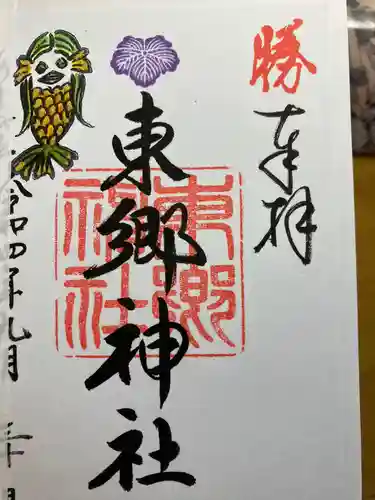 勝
奉拝
東郷神社
東郷神社
令和四年九月三十日